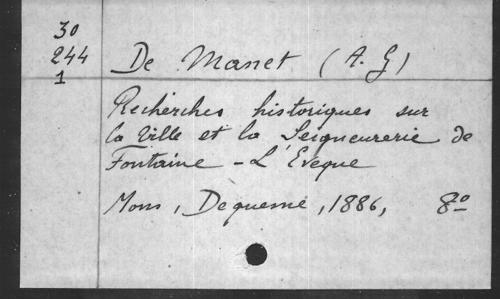 30
244
1
De Manet (A. G)
Recherches historiques sur
la Ville et la Seigneurerie de
Fontaine - L'Eveque
Mons, Dequesne, 1886, 8°